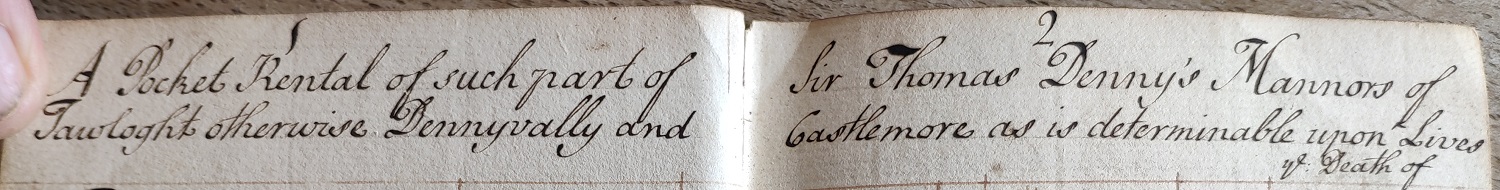 1
A Pocket Rental of such part of
Tawloght otherwise Dennyvally and
2
Sir Thomas Denny's Mannors of
Castlemore as is determinable upon Lives
yt: Death of